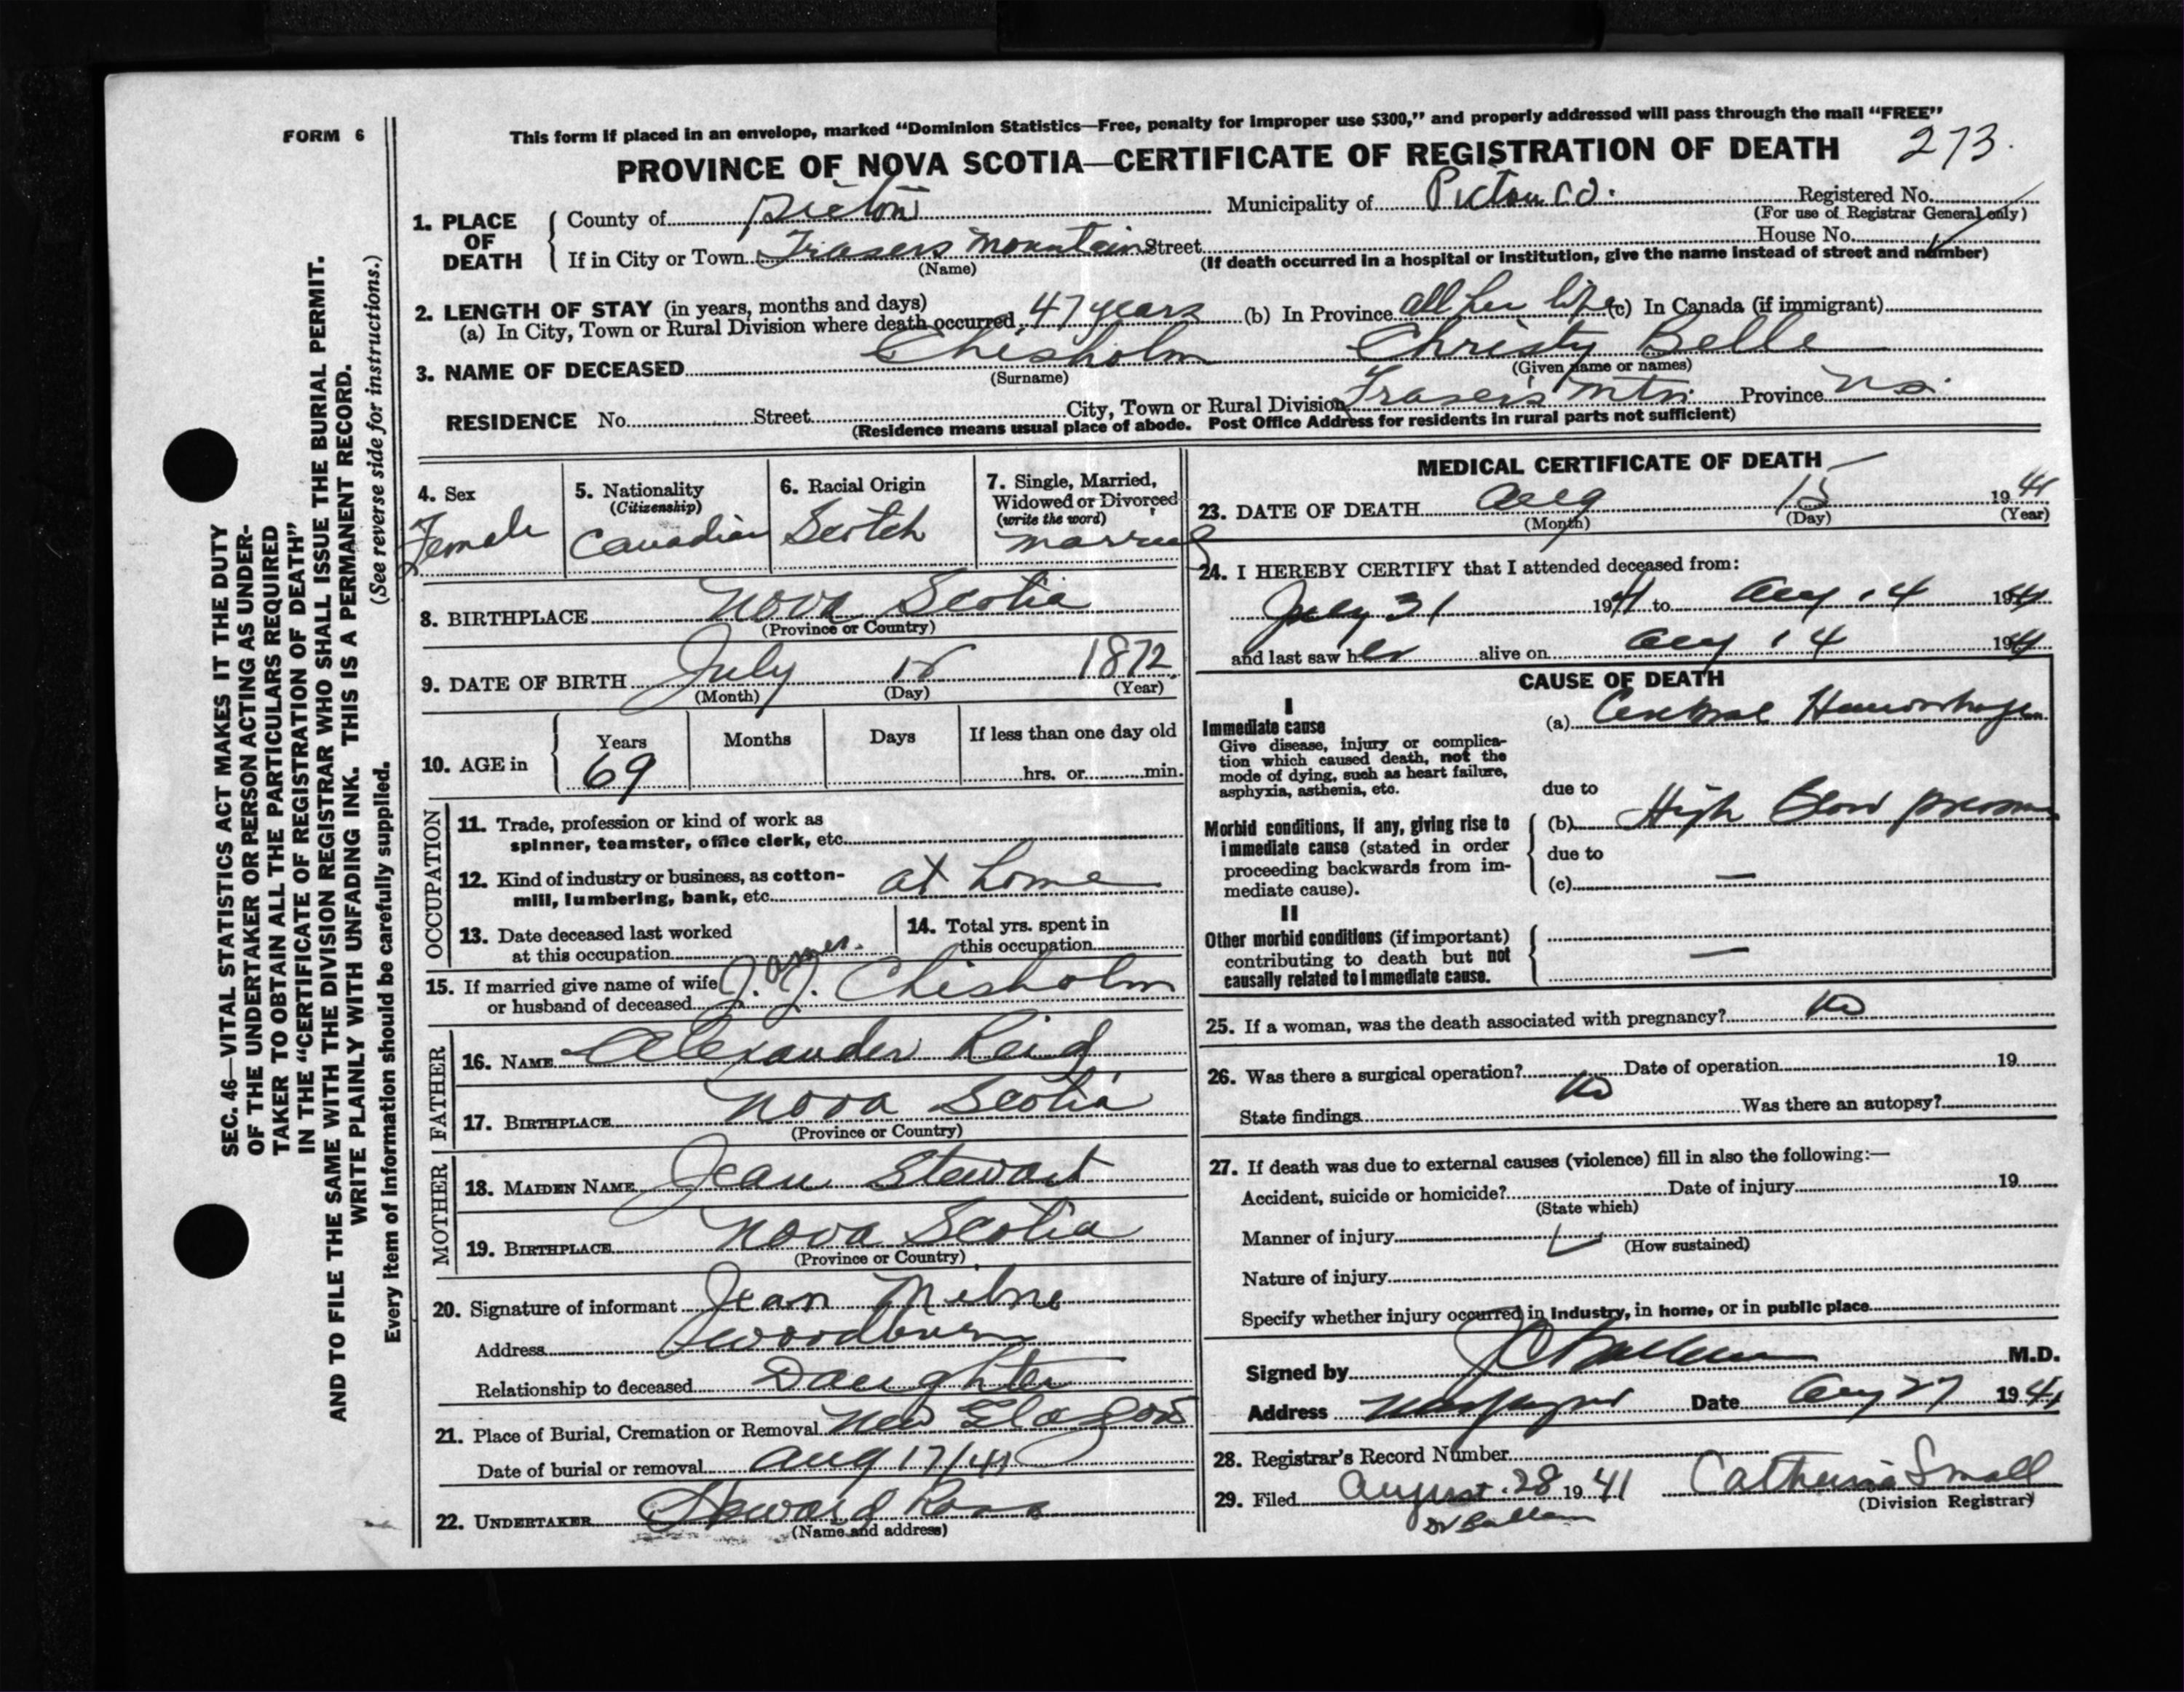 FORM 6
This form if placed in an envelope, marked "Dominion Statistics—Free, penalty for improper use $300," and properly addressed will pass through the mail "FREE"
PROVINCE OF NOVA SCOTIA—CERTIFICATE OF REGISTRATION OF DEATH 273.
1. PLACE OF DEATH
County of Pictou Municipality of Pictou Co. Registered No.
(For use of Registrar General only)
House No.
If in City or Town Frasers Mountain Street
(Name) (If death occurred in a hospital or institution, give the name instead of street and number)
2. LENGTH OF STAY (in years, months and days)
(a) In City, Town or Rural Division where death occurred 47 years (b) In Province all her life (c) In Canada (if immigrant)
3. NAME OF DECEASED Chisholm Christy Belle
(Surname) (Given name or names)
RESIDENCE No. Street City, Town or Rural Division Fraser's Mtn. Province N.S.
(Residence means usual place of abode. Post Office Address for residents in rural parts not sufficient)
4. Sex
Female
5. Nationality
(Citizenship)
Canadian
6. Racial Origin
Scotch
7. Single, Married,
Widowed or Divorced
(write the word)
Married
8. BIRTHPLACE Nova Scotia
(Province or Country)
9. DATE OF BIRTH July 1872
(Month) (Day) (Year)
10. AGE in
Years Months Days If less than one day old
69 hrs. or min.
OCCUPATION
11. Trade, profession or kind of work as
spinner, teamster, office clerk, etc.
12. Kind of industry or business, as cotton-
mill, lumbering, bank, etc. at home
13. Date deceased last worked
at this occupation
14. Total yrs. spent in
this occupation
15. If married give name of wife
or husband of deceased J. J. Chisholm
James.
FATHER
16. NAME Alexander Reid
17. BIRTHPLACE Nova Scotia
(Province or Country)
MOTHER
18. MAIDEN NAME Jean Stewart
19. BIRTHPLACE Nova Scotia
(Province or Country)
20. Signature of informant Jean Milne
Address Woodburn
Relationship to deceased Daughter
21. Place of Burial, Cremation or Removal New Glasgow
Date of burial or removal Aug 17/41
22. UNDERTAKER Howard Ross
(Name and address)
MEDICAL CERTIFICATE OF DEATH
23. DATE OF DEATH Aug 15 1941
(Month) (Day) (Year)
24. I HEREBY CERTIFY that I attended deceased from:
July 31 1941 to Aug 14 1941
and last saw her alive on Aug 14 1941
CAUSE OF DEATH
I
Immediate cause
Give disease, injury or complica-
tion which caused death, not the
mode of dying, such as heart failure,
asphyxia, asthenia, etc.
(a) Cerebral Hemorrhage
due to
Morbid conditions, if any, giving rise to
immediate cause (stated in order
proceeding backwards from im-
mediate cause).
(b) High Blood pressure
due to
(c) —
II
Other morbid conditions (if important)
contributing to death but not
causally related to immediate cause.
—
25. If a woman, was the death associated with pregnancy? No
26. Was there a surgical operation? No Date of operation 19
State findings Was there an autopsy?
27. If death was due to external causes (violence) fill in also the following:—
Accident, suicide or homicide? Date of injury 19
(State which)
Manner of injury
(How sustained)
Nature of injury
Specify whether injury occurred in industry, in home, or in public place
Signed by M.D.
Address Date Aug 27 1941
28. Registrar's Record Number
29. Filed August 28 1941 Catherine Small
(Division Registrar)
SEC. 46—VITAL STATISTICS ACT MAKES IT THE DUTY
OF THE UNDERTAKER OR PERSON ACTING AS UNDER-
TAKER TO OBTAIN ALL THE PARTICULARS REQUIRED
IN THE "CERTIFICATE OF REGISTRATION OF DEATH"
AND TO FILE THE SAME WITH THE DIVISION REGISTRAR WHO SHALL ISSUE THE BURIAL PERMIT.
WRITE PLAINLY WITH UNFADING INK. THIS IS A PERMANENT RECORD.
(See reverse side for instructions.)
Every item of information should be carefully supplied.